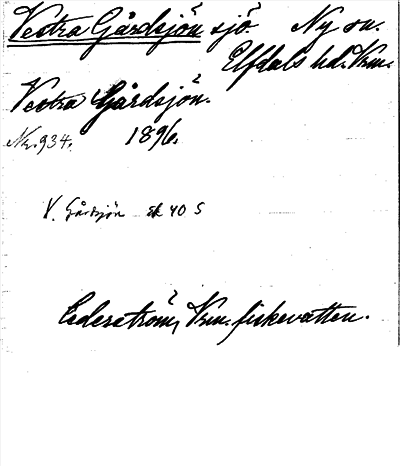 Vestra Gårdsjön sjö Ny sn.
Elfdals hd. Vrm.
Vestra Gårdsjön.
Nr. 934. 1896.
V. Gårdsjön ek 40 S
Cederström, Vrm. fiskevatten.